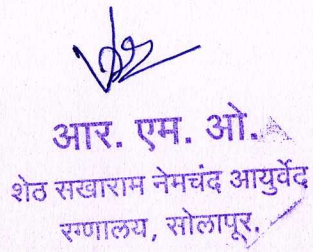 आर. एम. ओ.
शेठ सखाराम नेमचंद आयुर्वेद
रग्णालय, सोलापूर.